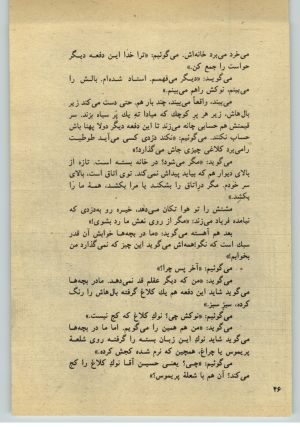 می‌خرد می‌برد خانه‌اش. می‌گوئیم: «ترا خدا این دفعه دیگر
حواست را جمع کن.»
می‌گوید: «دیگر می‌فهمم. استاد شده‌ام. بالش را
می‌بینم، نوکش راهم می‌بینم.»
می‌بیند، واقعاً می‌بیند، چند بار هم. حتی دست می‌کند زیر
بال‌هاش، زیر هر پر کوچک که مبادا ته یک پر سیاه بزند. سر
قیمتش هم حسابی چانه می‌زند تا این دفعه دیگر دولا پهنا باش
حساب نکنند. می‌گوئیم: «نکند دزدی کسی می‌آید طوطیت
رامی‌برد کلاغی چیزی جاش می‌گذارد؟»
می‌گوید: «مگر می‌شود؟ در خانه بسته است. تازه از
بالای دیوار هم که بیاید پیداش نمی‌کند. توی اتاق است، بالای
سر خودم. مگر دراتاق را بشکند یا مرا بکشد، همهٔ ما را
بکشد.»
مشتش را تو هوا تکان می‌دهد، خیره رو به‌دزدی که
نیامده فریاد می‌زند: «مگر از روی نعش ما رد بشوی!»
بعد هم آهسته می‌گوید: «ما در بچه‌ها خوابش آن قدر
سبك است که نگو!همه‌اش می‌گوید این چیز که نمی‌گذارد من
بخوابم!»
می‌گوئیم: «آخر پس چرا؟»
می‌گوید: «من که دیگر عقلم قد نمی‌دهد. مادر بچه‌ها
می‌گوید شاید این دفعه هم یك کلاغ گرفته بال‌هاش را رنگ
کرده، سبز سبز.»
می‌گوئیم: «نوکش چی؟ نوك کلاغ که کج نیست.»
می‌گوید: «من هم همین را می‌گویم. اما ما در بچه‌ها
می‌گوید شاید نوك این زبان بسته را گرفته روی شعلهٔ
پریموس یا چراغ، همچین که نرم شده کجش کرده.»
می‌گوئیم: «چی؟ یعنی حسین آقا نوك کلاغ را کج
می‌کند؟ آن هم با شعلهٔ پریموس؟»
۴۶